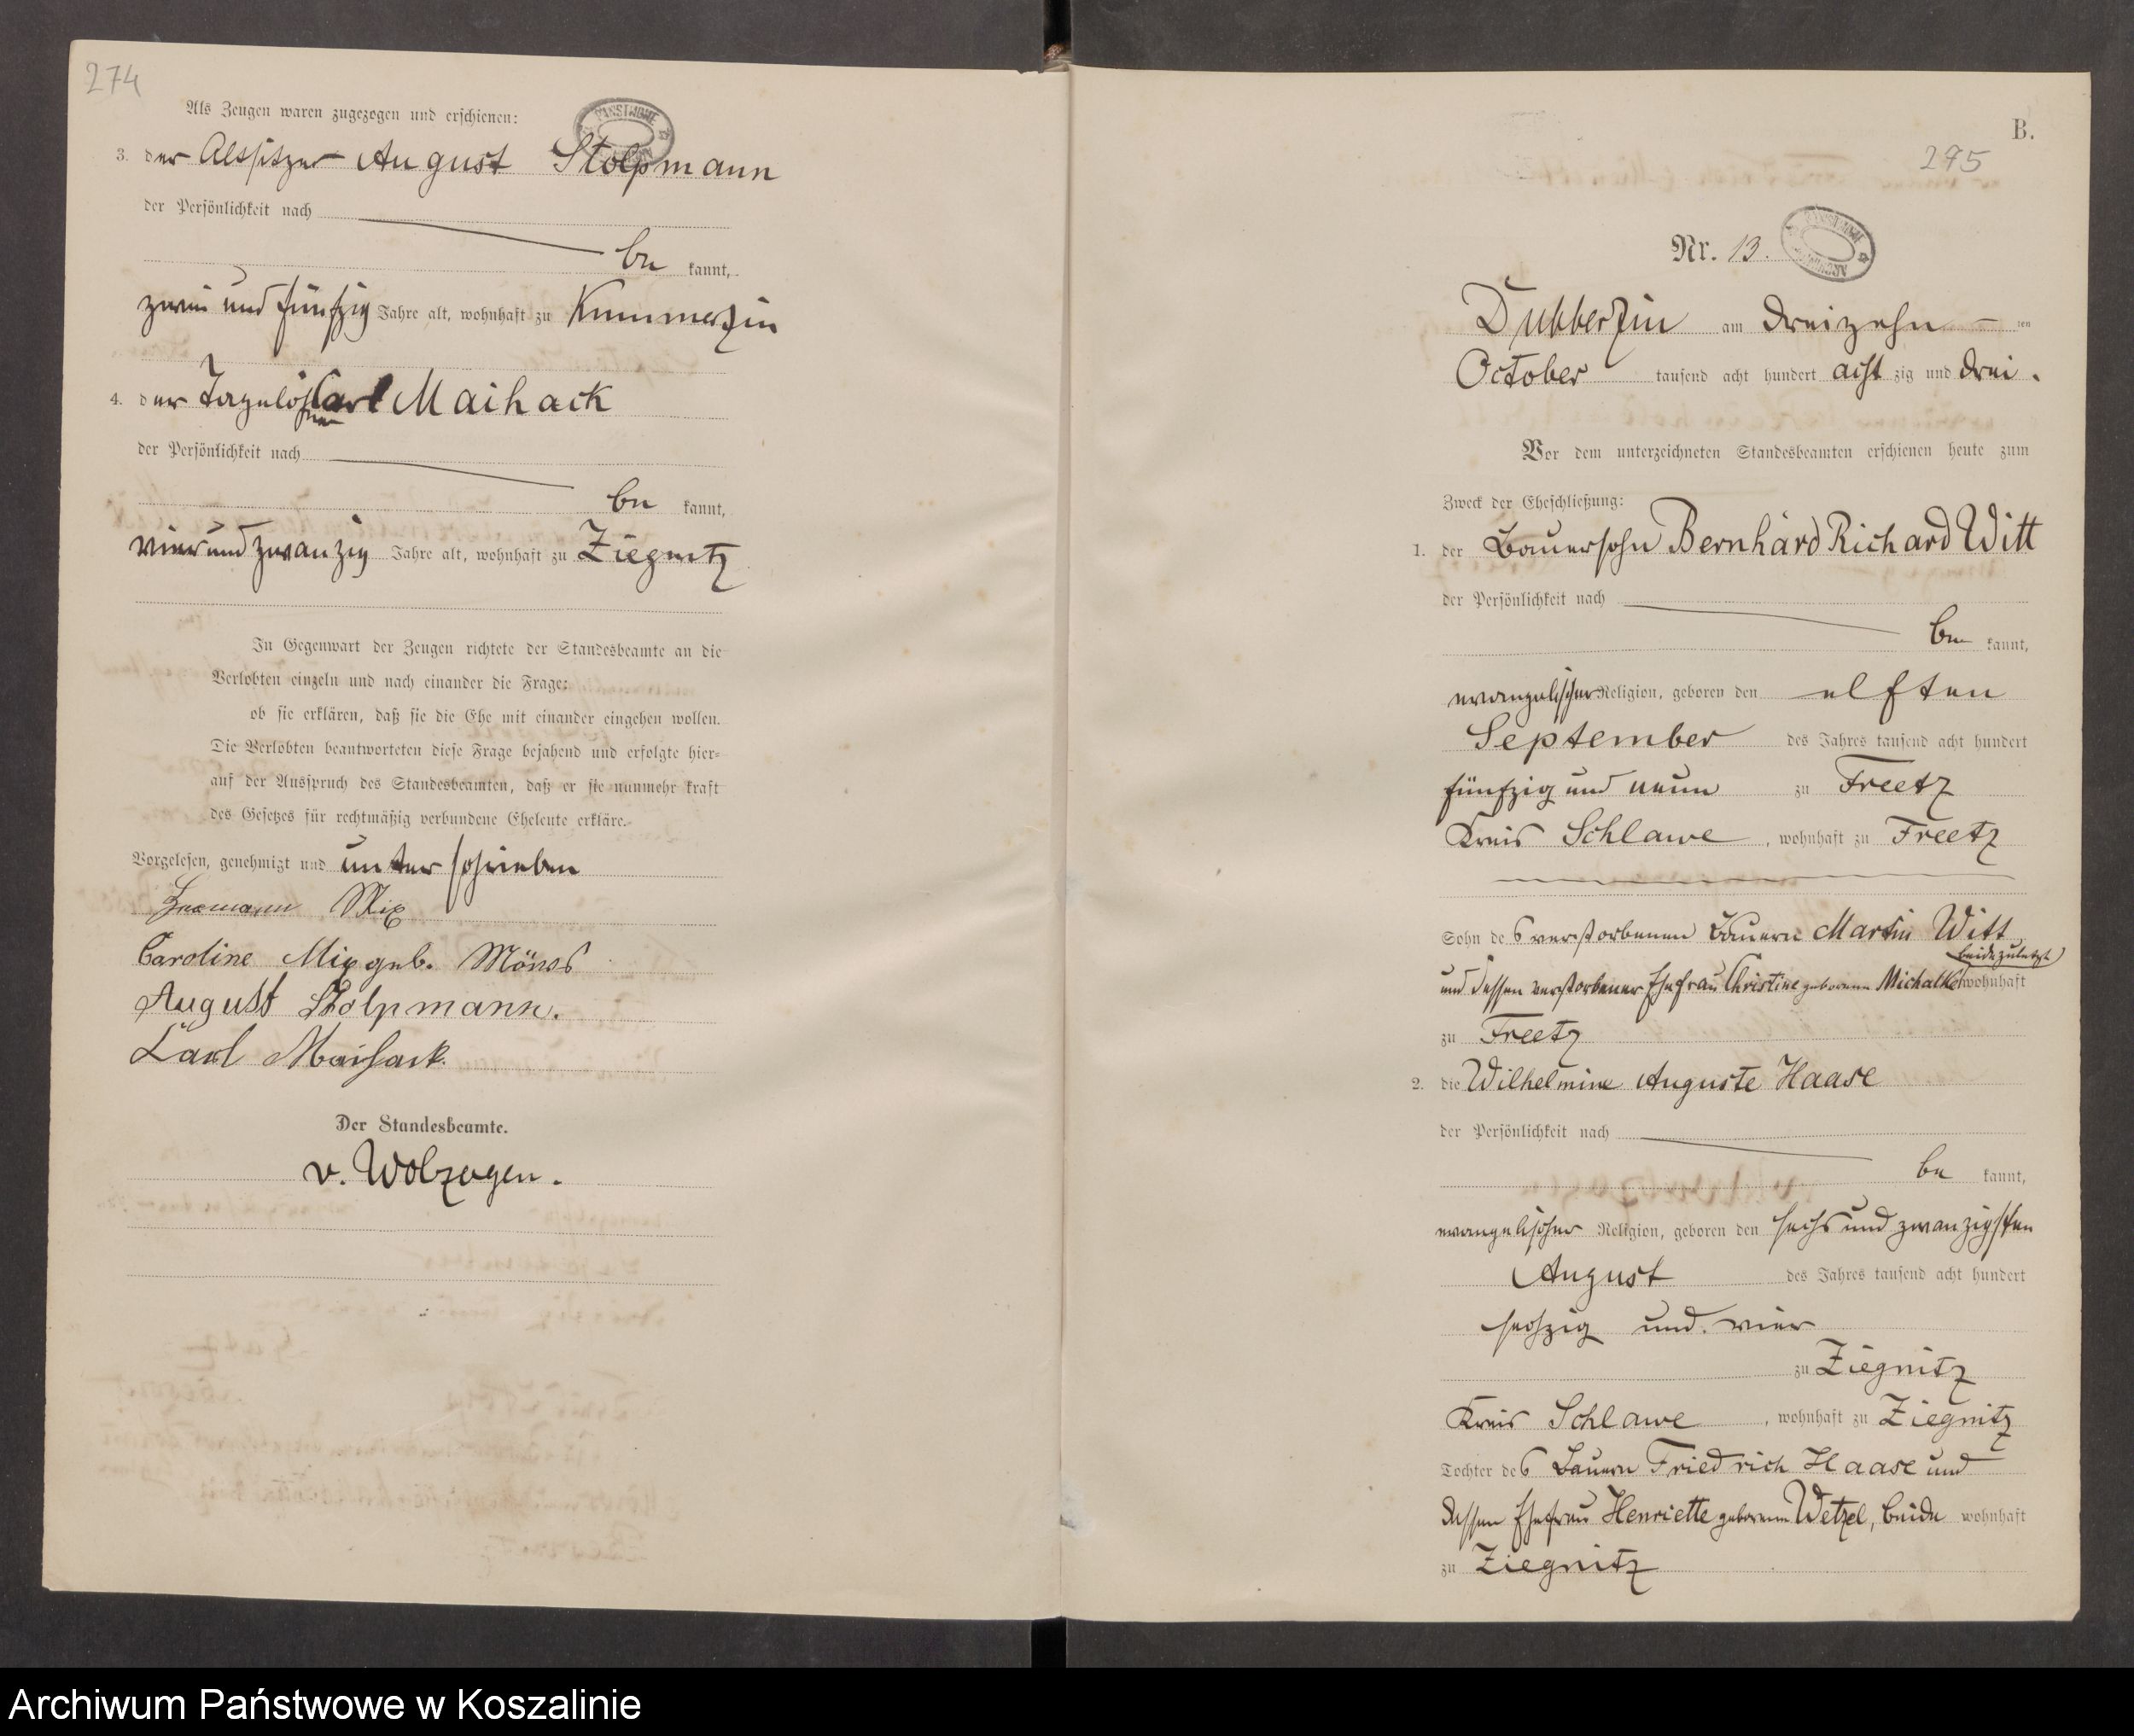 274
Als Zeugen waren zugezogen und erschienen:
3. der Altsitzer August Stolpmann
der Persönlichkeit nach
be kannt,
zwei und fünfzig Jahre alt, wohnhaft zu Kummerzin
4. der Tagelöhner Carl Maihack
der Persönlichkeit nach
be kannt,
vier und zwanzig Jahre alt, wohnhaft zu Ziegnitz
In Gegenwart der Zeugen richtete der Standesbeamte an die
Verlobten einzeln und nach einander die Frage:
ob sie erklären, daß sie die Ehe mit einander eingehen wollen.
Die Verlobten beantworteten diese Frage bejahend und erfolgte hier-
auf der Ausspruch des Standesbeamten, daß er sie nunmehr kraft
des Gesetzes für rechtmäßig verbundene Eheleute erkläre.
Vorgelesen, genehmigt und unterschrieben
Hermann Mix
Caroline Mix geb. Möws
August Stolpmann.
Karl Maihack.
Der Standesbeamte.
v. Wolzogen.
B.
295
Nr. 13.
Dubberzin am dreizehn ten
October tausend acht hundert acht zig und drei.
Vor dem unterzeichneten Standesbeamten erschienen heute zum
Zweck der Eheschließung:
1. der Bauersohn Bernhard Richard Witt
der Persönlichkeit nach
be kannt,
evangelischer Religion, geboren den elften
September des Jahres tausend acht hundert
fünfzig und neun zu Freetz
Kreis Schlawe, wohnhaft zu Freetz
Sohn des verstorbenen Bauern Martin Witt
beide zuletzt
und dessen verstorbener Ehefrau Christine geborene Michalke wohnhaft
zu Freetz
2. die Wilhelmine Auguste Haase
der Persönlichkeit nach
be kannt,
evangelischer Religion, geboren den sechs und zwanzigsten
August des Jahres tausend acht hundert
sechzig und vier
zu Ziegnitz
Kreis Schlawe, wohnhaft zu Ziegnitz
Tochter des Bauern Friedrich Haase und
dessen Ehefrau Henriette geborene Wetzel, beide wohnhaft
zu Ziegnitz
Archiwum Państwowe w Koszalinie